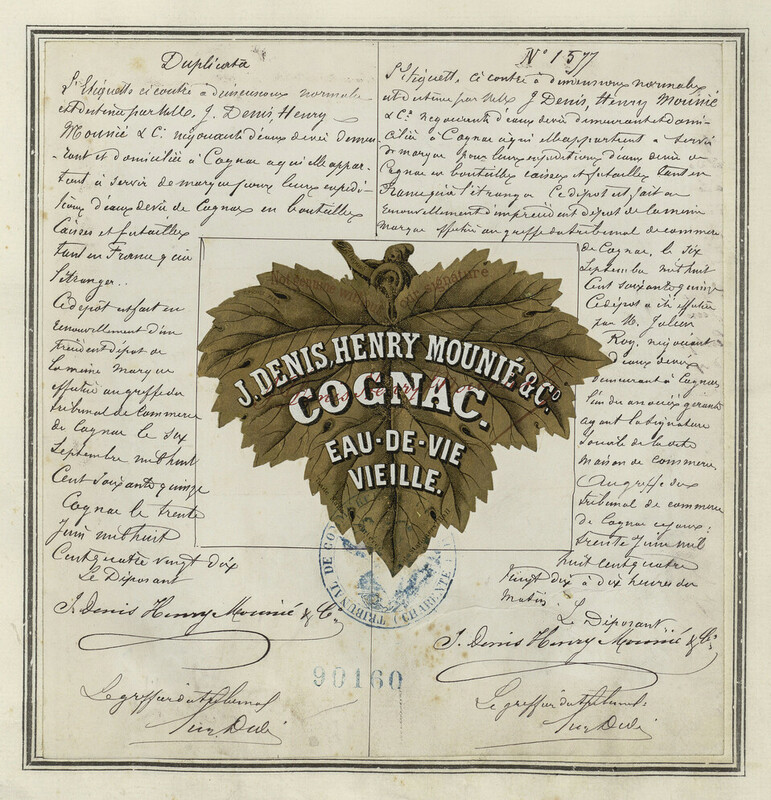 Duplicata
L'étiquette ci contre à dimensions normales
est destinée par M.M. J. Denis, Henry
Mounié & Cie négociants d'eaux devie demeu-
rant et domiciliés à Cognac à qui elle appar-
tient à servir de marque pour leurs expédi-
tions d'eaux devie de Cognac en bouteilles
Caisses et futailles
tant en France qu'à
l'étranger.
Ce dépôt est fait en
renouvellement d'un
précédent dépôt de
la même marque
effectué au greffe du
tribunal de Commerce
de Cognac le six
Septembre mil huit
Cent soixante quinze
Cognac le trente
Juin mil huit
Cent quatre vingt dix
Le Déposant
J. Denis Henry Mounié & Co
Le greffier du tribunal
No 1577
L'étiquette ci contre à dimensions normales
est destinée par M.M. J. Denis, Henry Mounié
& Co négociants d'eaux devie demeurant et domi-
ciliés à Cognac à qui elle appartient à servir
de marque pour leurs expéditions d'eaux devie de
Cognac en bouteilles caisses et futailles tant en
France qu'à l'étranger Ce dépôt est fait en
renouvellement d'un précédent dépôt de la même
marque effectué au greffe du tribunal de commerce
de Cognac, le six
Septembre mil huit
Cent soixante quinze
Ce dépôt a été effectué
par M. Julien
Roy, négociant
d'eaux devie
demeurant à Cognac
l'un des associés gérants
ayant la signature
sociale de la dite
maison de commerce
Au greffe du
tribunal de commerce
de Cognac ce jour
trente Juin mil
huit cent quatre
vingt dix à dix heures du
matin.
Le Déposant
J. Denis Henry Mounié & Co
Le greffier du tribunal
Not genuine without our signature
J. DENIS, HENRY MOUNIÉ & Co
COGNAC.
EAU-DE-VIE
VIEILLE.
TRIBUNAL DE
CHARENTE
90160